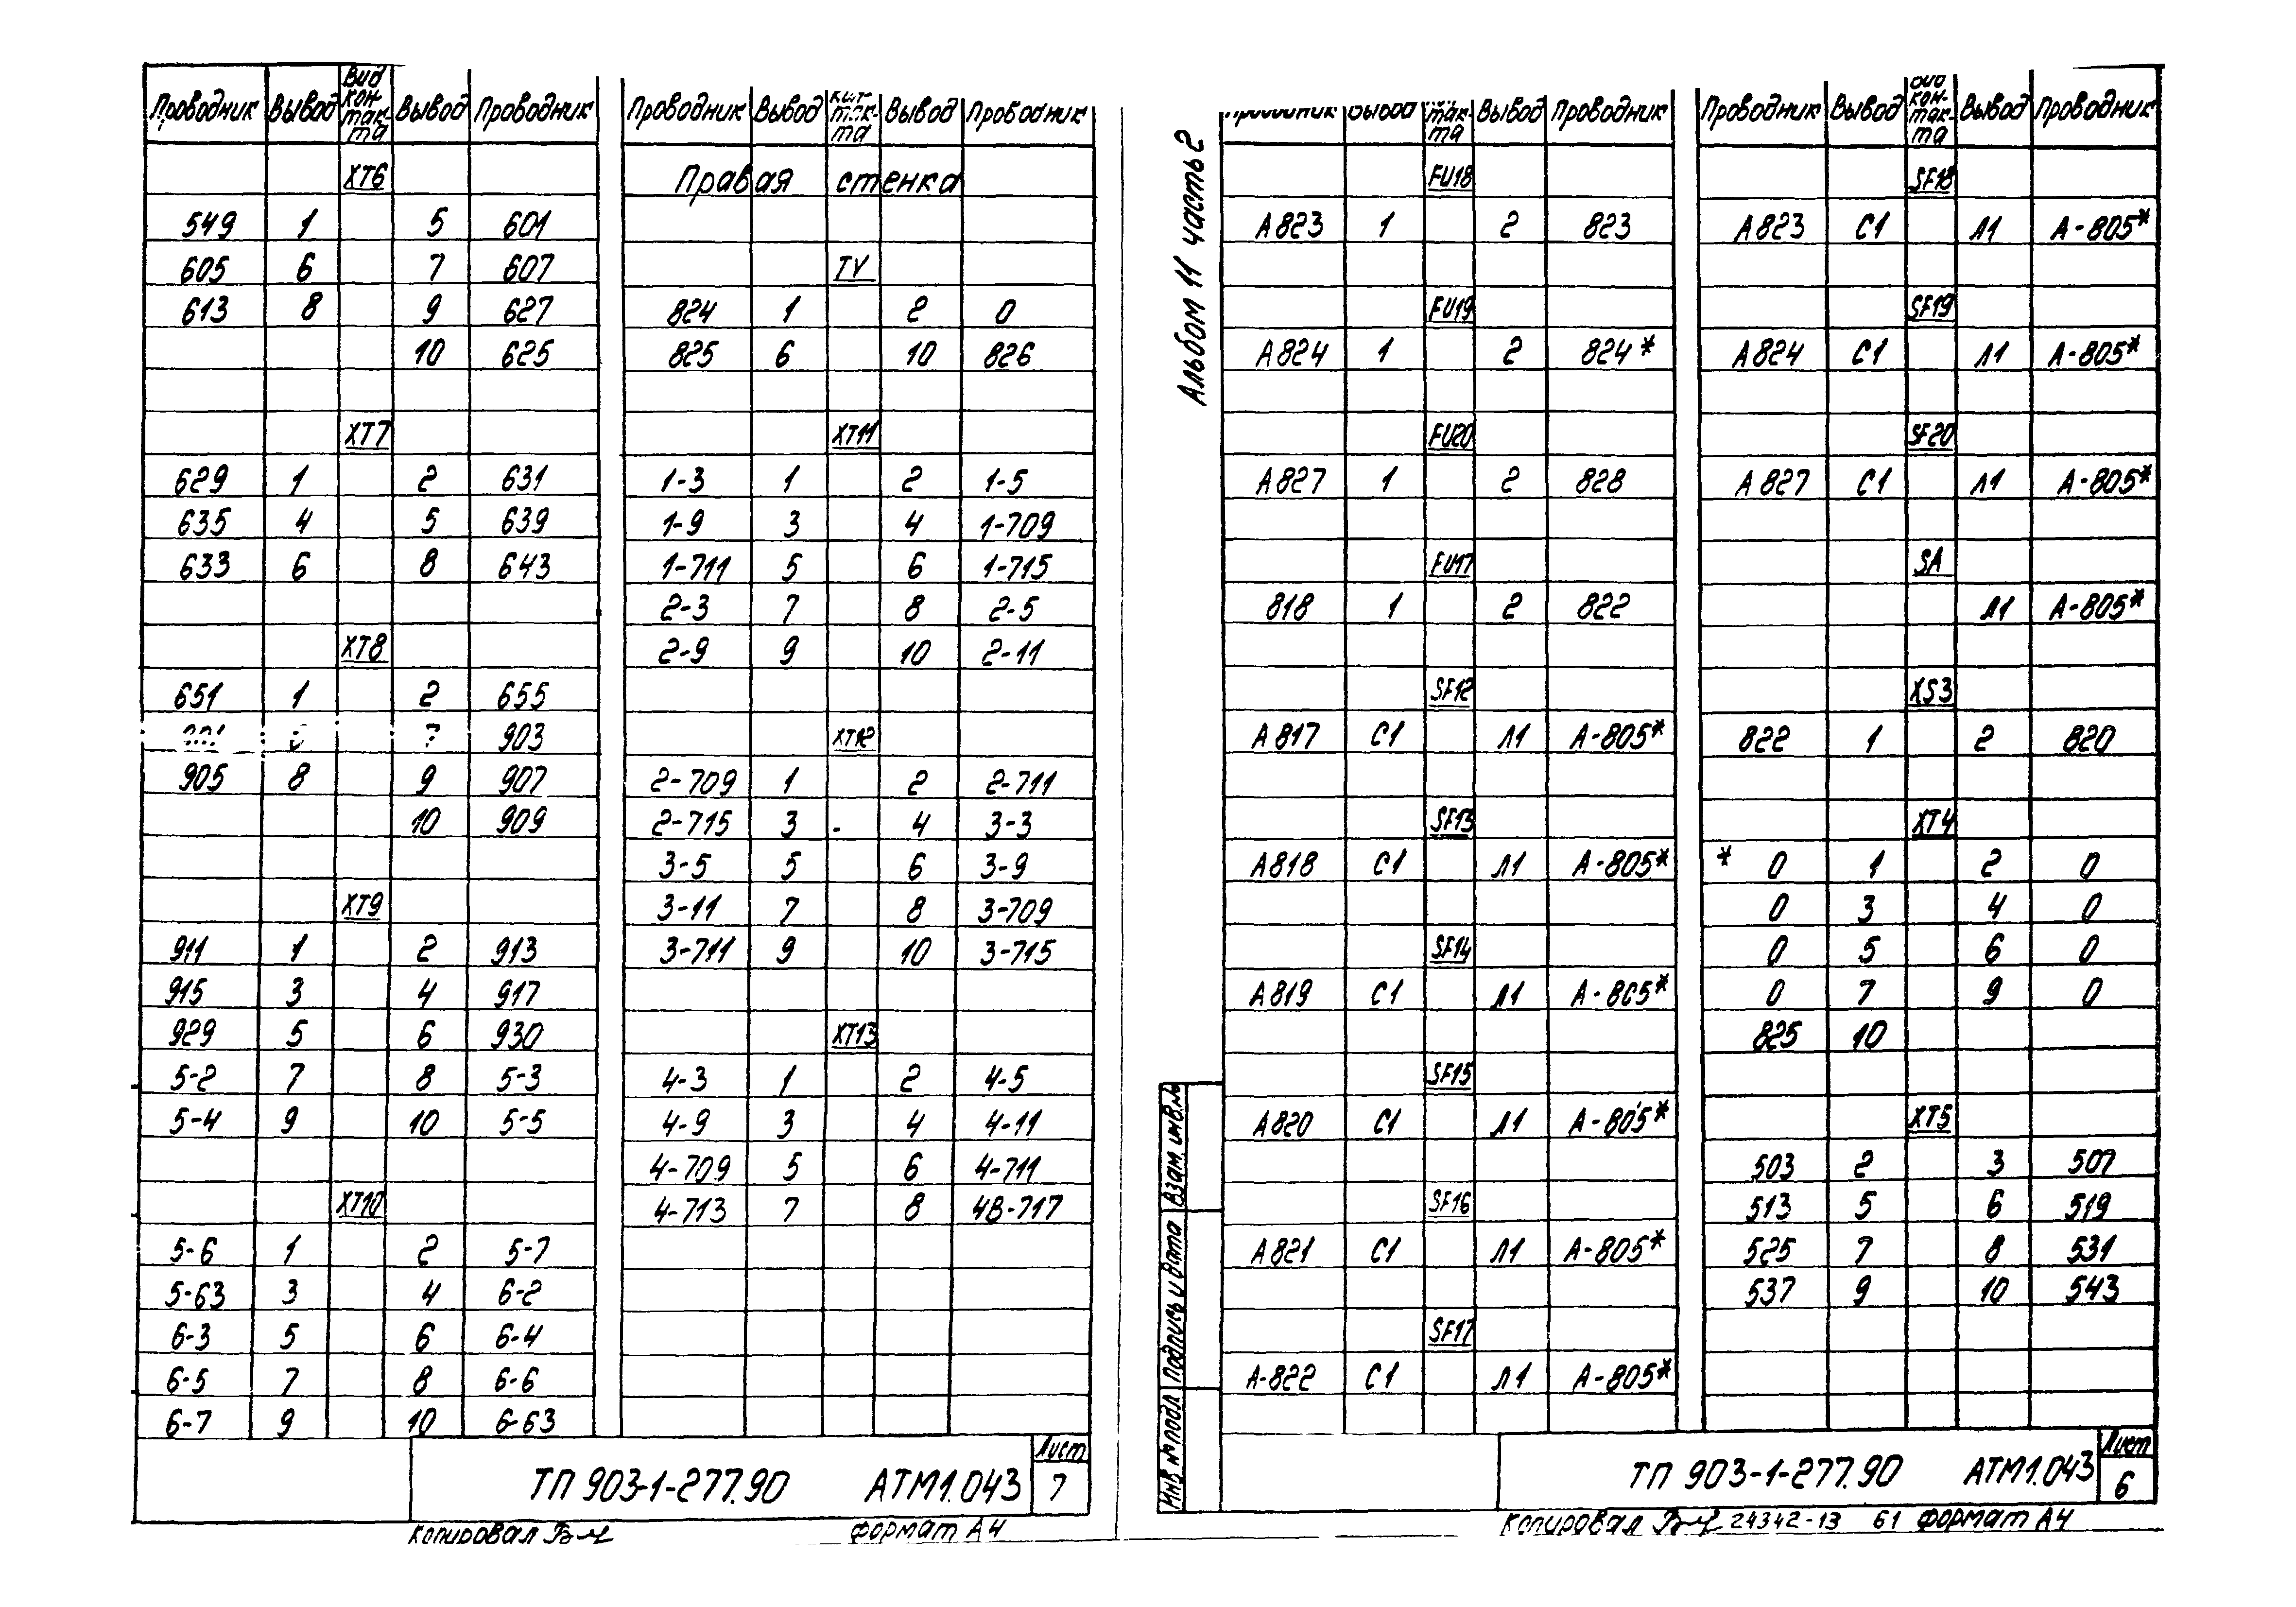 Проводник Вывод Вид кон-так-та Вывод Проводник
XT6
549 1 5 601
605 6 7 607
613 8 9 627
10 625
XT7
629 1 2 631
635 4 5 639
633 6 8 643
XT8
651 1 2 655
7 903
905 8 9 907
10 909
XT9
911 1 2 913
915 3 4 917
929 5 6 930
5-2 7 8 5-3
5-4 9 10 5-5
XT10
5-6 1 2 5-7
5-63 3 4 6-2
6-3 5 6 6-4
6-5 7 8 6-6
6-7 9 10 6-63
Проводник Вывод так-та Вывод Проводник
Правая стенка
TV
824 1 2 0
825 6 10 826
XT11
1-3 1 2 1-5
1-9 3 4 1-709
1-711 5 6 1-715
2-3 7 8 2-5
2-9 9 10 2-11
XT12
2-709 1 2 2-711
2-715 3 4 3-3
3-5 5 6 3-9
3-11 7 8 3-709
3-711 9 10 3-715
XT13
4-3 1 2 4-5
4-9 3 4 4-11
4-709 5 6 4-711
4-713 7 8 4В-717
ТП 903-1-277.90 АТМ1.043
Лист
7
Копировал
Формат А4
Альбом 11 часть 2
Проводник Вывод так-та Вывод Проводник
FU18
А823 1 2 823
FU19
А824 1 2 824*
FU20
А827 1 2 828
FU17
818 1 2 822
SF12
А817 С1 Л1 А-805*
SF13
А818 С1 Л1 А-805*
SF14
А819 С1 Л1 А-805*
SF15
А820 С1 Л1 А-805*
SF16
А821 С1 Л1 А-805*
SF17
А-822 С1 Л1 А-805*
Проводник Вывод Вид кон-так-та Вывод Проводник
SF18
А823 С1 Л1 А-805*
SF19
А824 С1 Л1 А-805*
SF20
А827 С1 Л1 А-805*
SA
Л1 А-805*
XS3
822 1 2 820
XT4
* 0 1 2 0
0 3 4 0
0 5 6 0
0 7 9 0
825 10
XT5
503 2 3 507
513 5 6 519
525 7 8 531
537 9 10 543
Взам. инв.№
Подпись и дата
Инв № подл
ТП 903-1-277.90 АТМ1.043
Лист
6
Копировал 24342-13 61 Формат А4